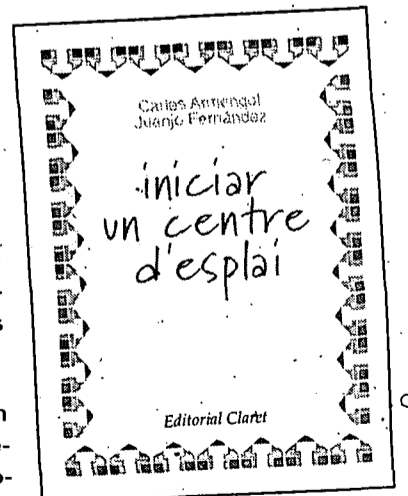 Carles Armengol
Juanjo Fernández
iniciar
un centre
d'esplai
Editorial Claret